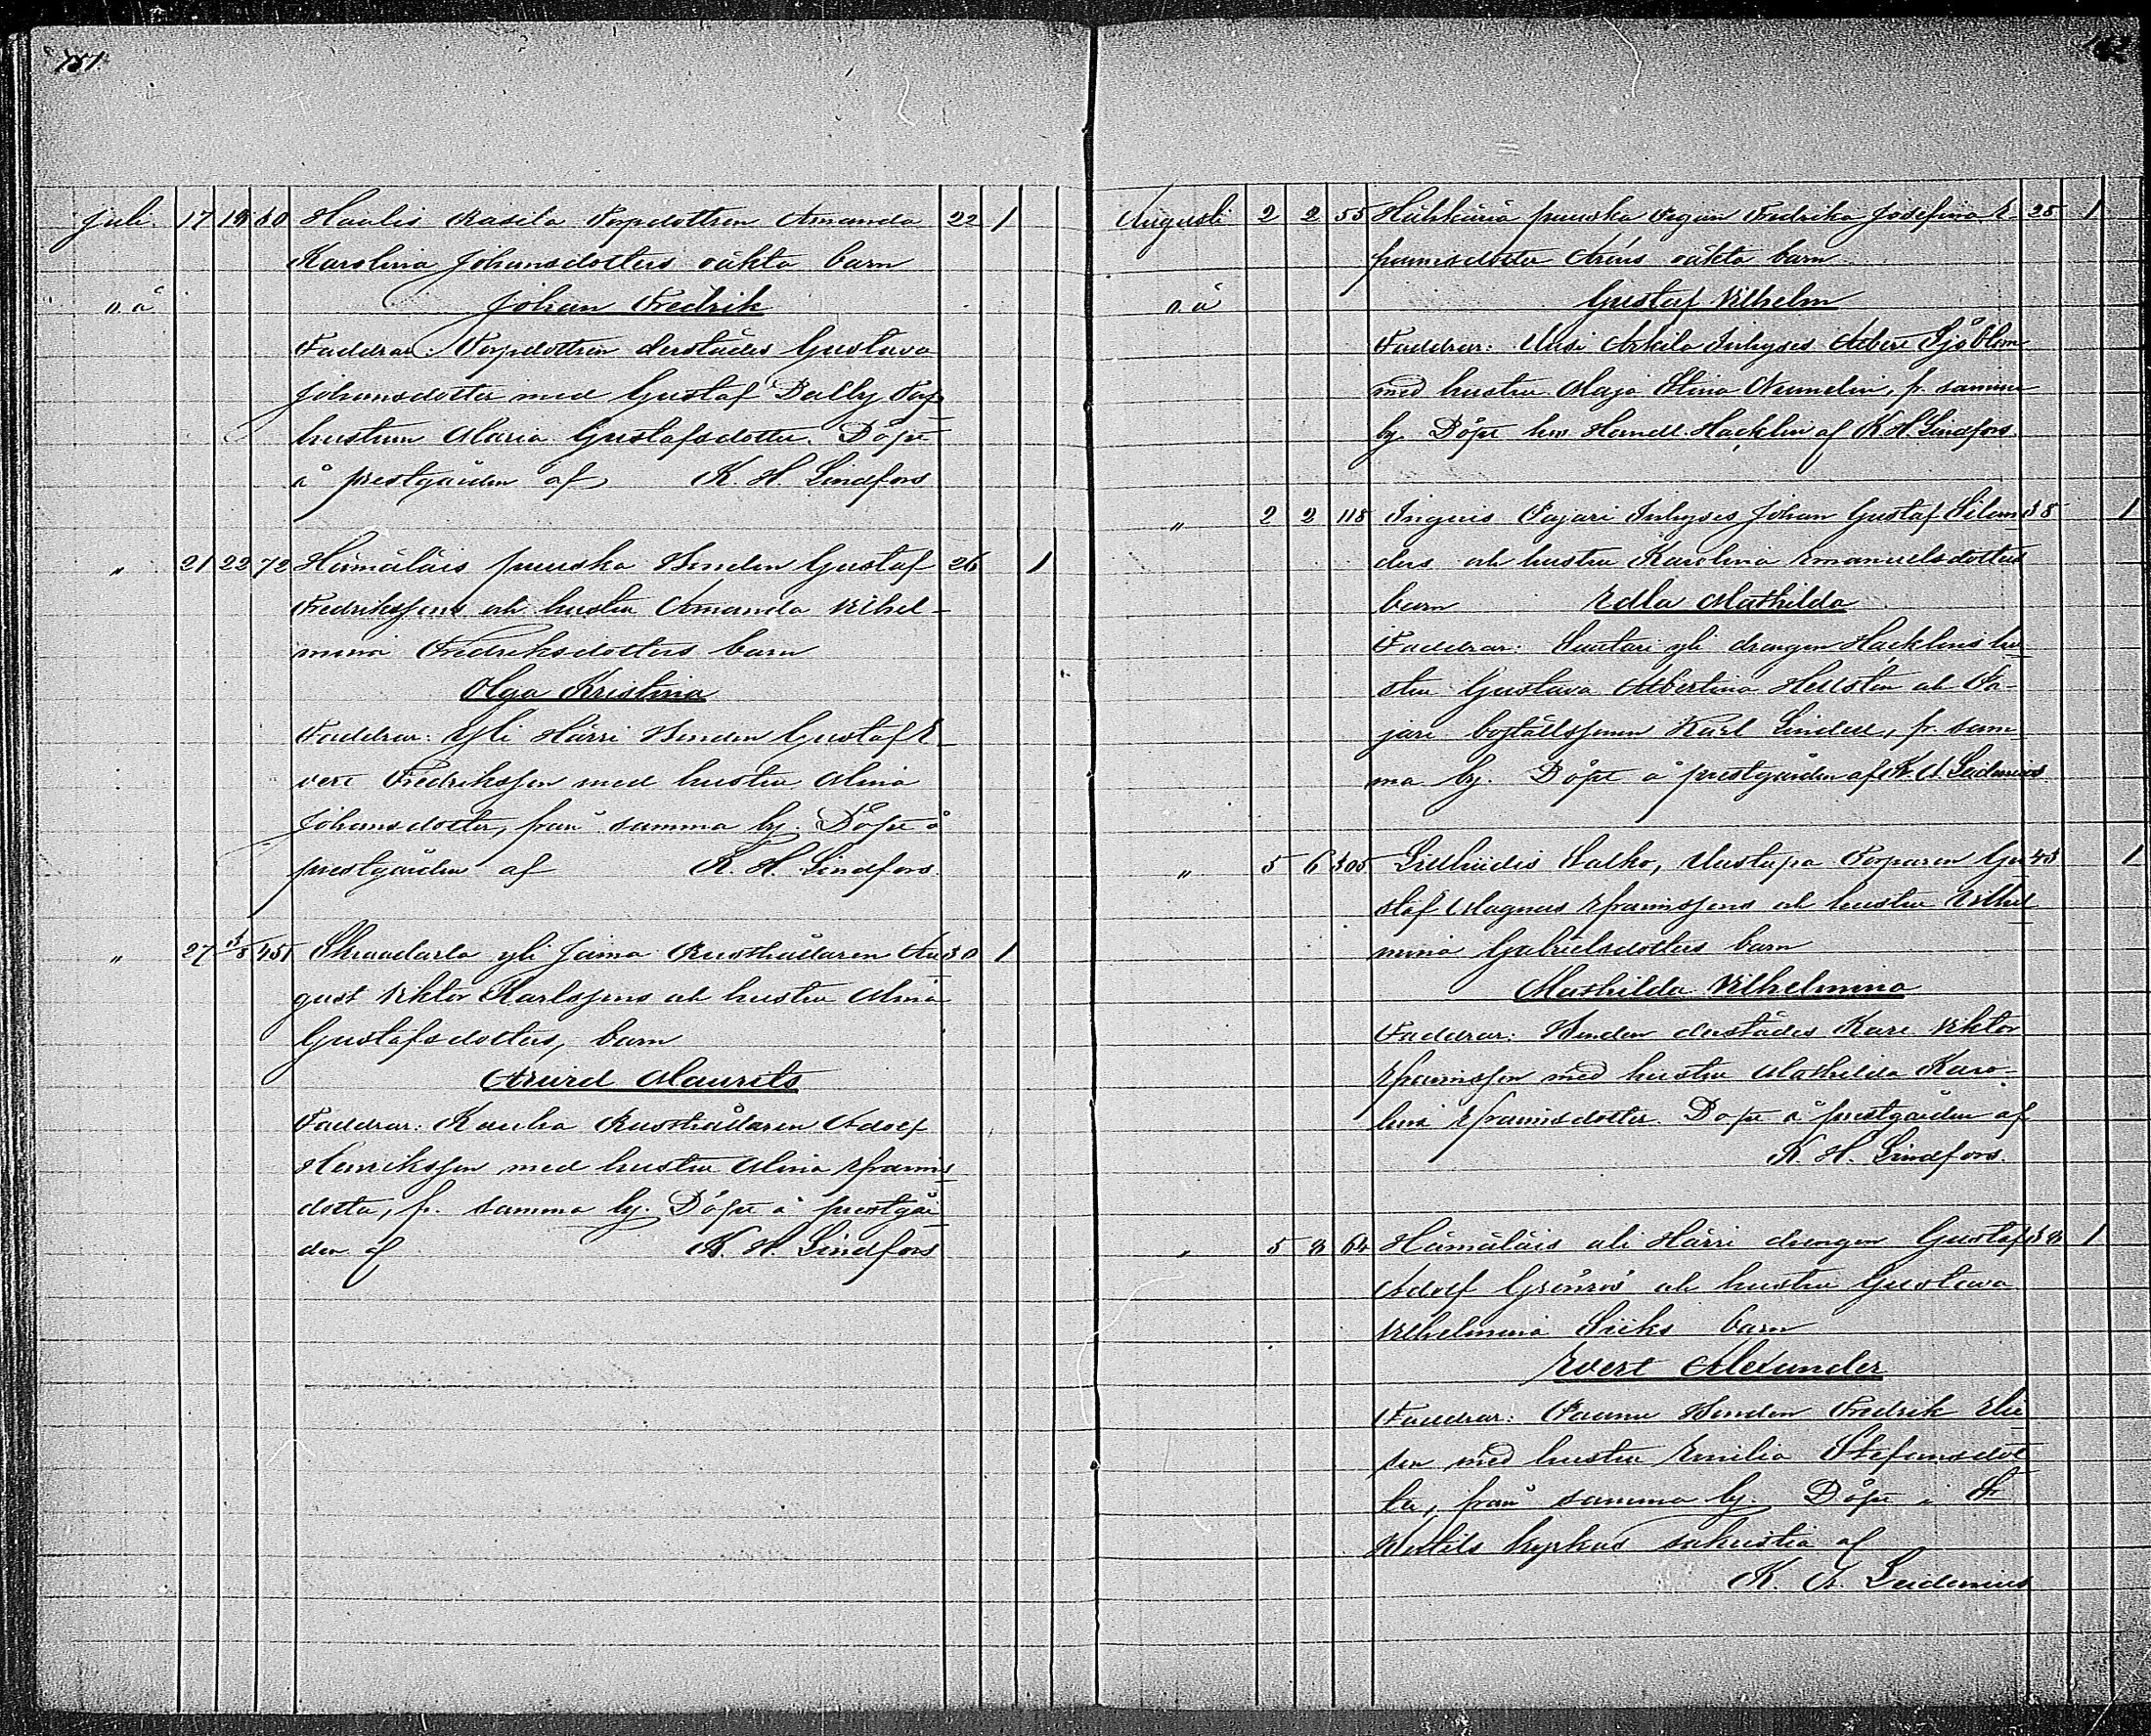 151.
Juli. 17 18 80 Haalis Rasila Torpdottren Amanda 22 1
Karolina Johansdotters oäkta barn
o. ä Johan Fredrik
Faddrar: Torpdottren derstädes Gustava
Johansdotter med Gustaf Dalby Torp
hustrun Maria Gustafsdotter. Döpt
å prestgården af K. H. Lindfors
" 21 22 72 Hämäläis puuska Bonden Gustaf 26 1
Fredrikssons och hustru Amanda Vilhel-
mina Fredriksdotters barn
Olga Kristina
Faddrar: Yli Härri Bonden Gustaf E-
vert Fredriksson med hustru Mina
Johansdotter, från samma by. Döpt å
prestgården af K. H. Lindfors.
" 27 3/8 451 Skraadarla yli Jama Rusthållaren Au 30 1
gust Viktor Karlssons och hustru Mina
Gustafsdotters, barn
Arvid Maurits
Faddrar: Rusthållaren Adolf
Henriksson med hustru Mina Efraims
dotter, fr. samma by. Döpt å prestgår
den af K. H. Lindfors
152
Augusti 2 2 55 puuska Pigan Fredrika Josefina E- 25 1
fraimsdotter oäkta barn
o. ä Gustaf Vilhelm
Faddrar: Uusi Arkila Inhyses Albert Sjöblom
med hustru Maja Stina Numelin, fr. samma
by. Döpt hos Hacklin af K. H. Lindfors.
" 2 2 118 Inguis Pajari Inhyses Johan Gustaf 38 1
ders och hustru Karolina Emanuelsdotters
barn Edla Mathilda
Faddrar: Suutari yli drengen Hacklins hu
stru Gustava Albertina Hellstén och Pa-
jari Karl Lindell, fr. sam
ma by. Döpt å prestgården af K. A. Leidenius
" 5 6 305 Salko, Uustupa Torparen Gu 43 1
staf Magnus Efraimssons och hustru Vilhel
mina Gabrielsdotters barn
Mathilda Vilhelmina
Faddrar: Bonden derstädes Karl Viktor
Efraimsson med hustru Mathilda Karo-
lina Efraimsdotter. Döpt å prestgården af
K. H. Lindfors.
" 5 8 64 Hämäläis ali Härri drengen Gustaf 38 1
Adolf Grönroos och hustru Gustava
Vilhelmina barn
Evert Alexander
Faddrar: Paavu Bonden Fredrik Elia
son med hustru Emilia Stefansdot
ter, från samma by. Döpt i St
Bertils kyrkas sakristia af
K. A. Leidenius